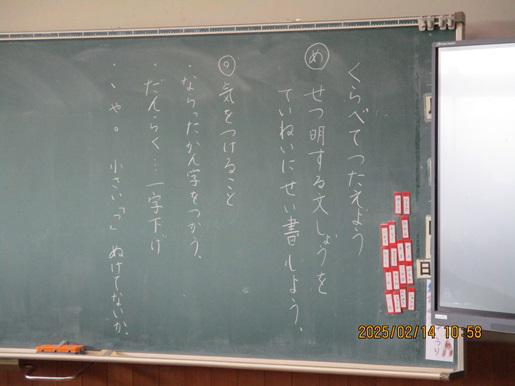 くらべてつたえよう
め せつ明する文しょうを
ていねいにせい書しよう。
◎気をつけること
・ならったかん字をつかう。
・だんらく…一字下げ
・、や。 小さい「っ」 ぬけてないか。
日
2025/02/14 10:58